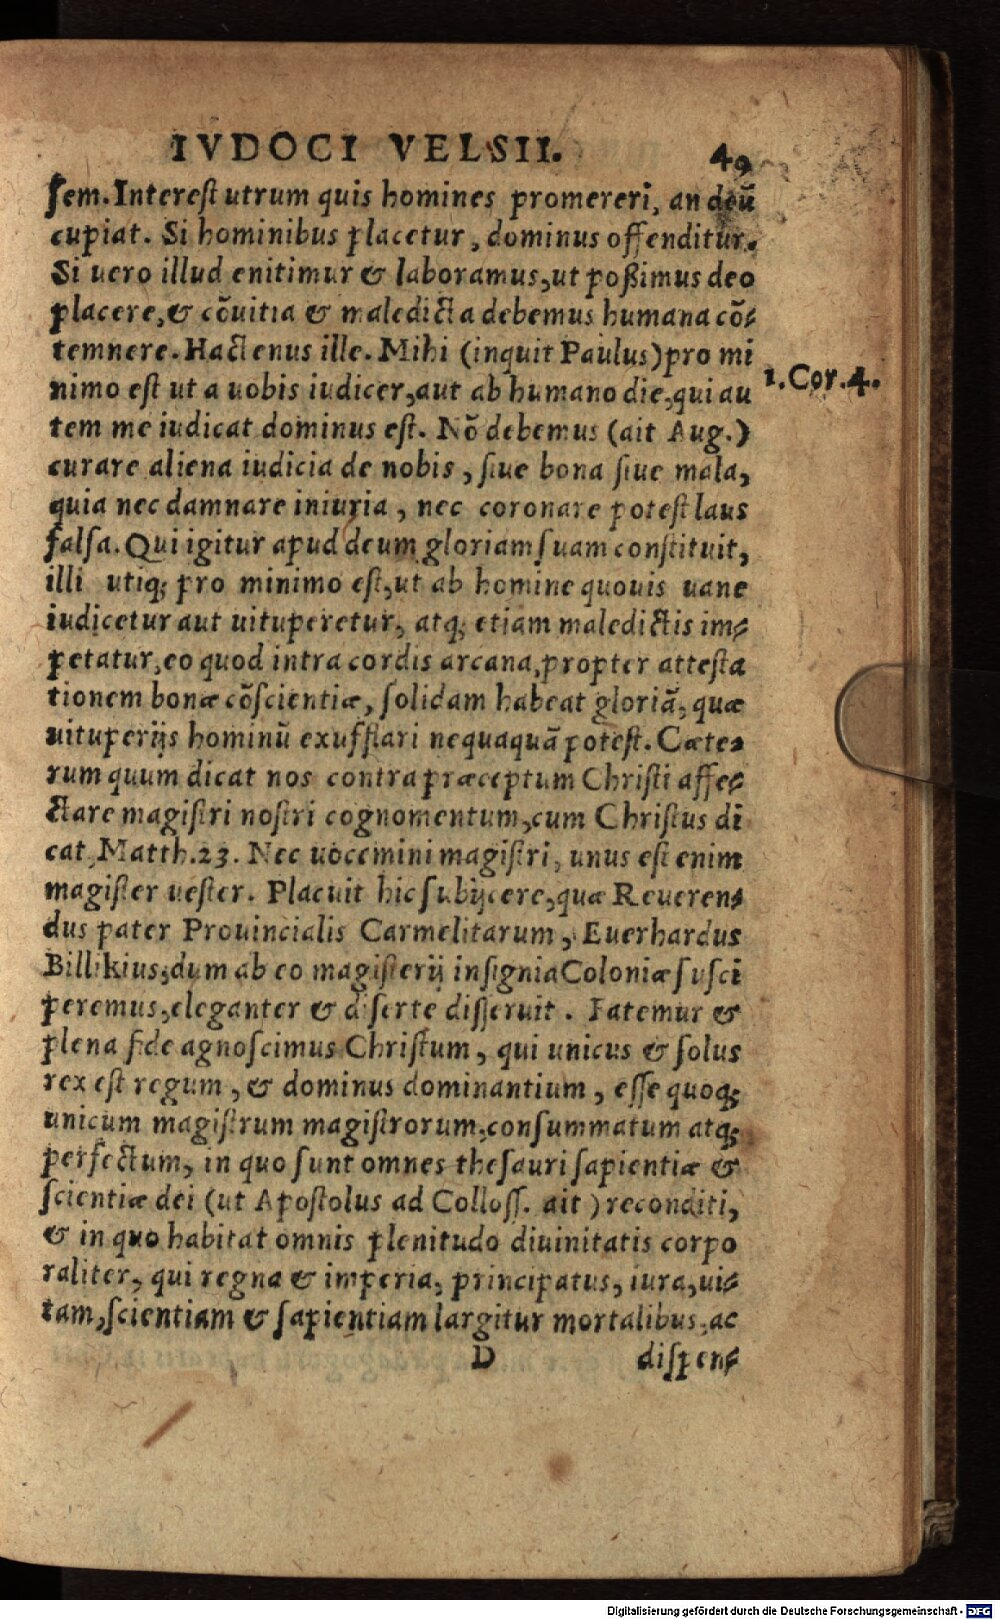 IVDOCI VELSII. 49
sem. Interest utrum quis homines promereri, an deũ
cupiat. Si hominibus placetur, dominus offenditur.
Si uero illud enitimur & laboramus, ut poßimus deo
placere, & cõuitia & maledicta debemus humana cõ-
temnere. Hactenus ille. Mihi (inquit Paulus) pro mi
nimo est ut a uobis iudicer, aut ab humano die, qui au
1. Cor. 4.
tem me iudicat dominus est. Nõ debemus (ait Aug.)
curare aliena iudicia de nobis, siue bona siue mala,
quia nec damnare iniuria, nec coronare potest laus
falsa. Qui igitur apud deum gloriam suam constituit,
illi utiq; pro minimo est, ut ab homine quouis uane
iudicetur aut uituperetur, atq; etiam maledictis im-
petatur, eo quod intra cordis arcana, propter attesta
tionem bonæ cõscientiæ, solidam habeat gloriã, quæ
uituperijs hominũ exufflari nequaquã potest. Cæte-
rum quum dicat nos contra præceptum Christi affe-
ctare magistri nostri cognomentum, cum Christus di
cat, Matth. 23. Nec uocemini magistri, unus est enim
magister uester. Placuit hic subijcere, quæ Reueren-
dus pater Prouincialis Carmelitarum, Euerhardus
Billikius, dum ab eo magisterij insignia Coloniæ susci
peremus, eleganter & diserte disseruit. Fatemur &
plena fide agnoscimus Christum, qui unicus & solus
rex est regum, & dominus dominantium, esse quoq;
unicum magistrum magistrorum, consummatum atq;
perfectum, in quo sunt omnes thesauri sapientiæ &
scientiæ dei (ut Apostolus ad Colloss. ait) reconditi,
& in quo habitat omnis plenitudo diuinitatis corpo
raliter, qui regna & imperia, principatus, iura, ui-
tam, scientiam & sapientiam largitur mortalibus, ac
D dispen-
Digitalisierung gefördert durch die Deutsche Forschungsgemeinschaft - DFG